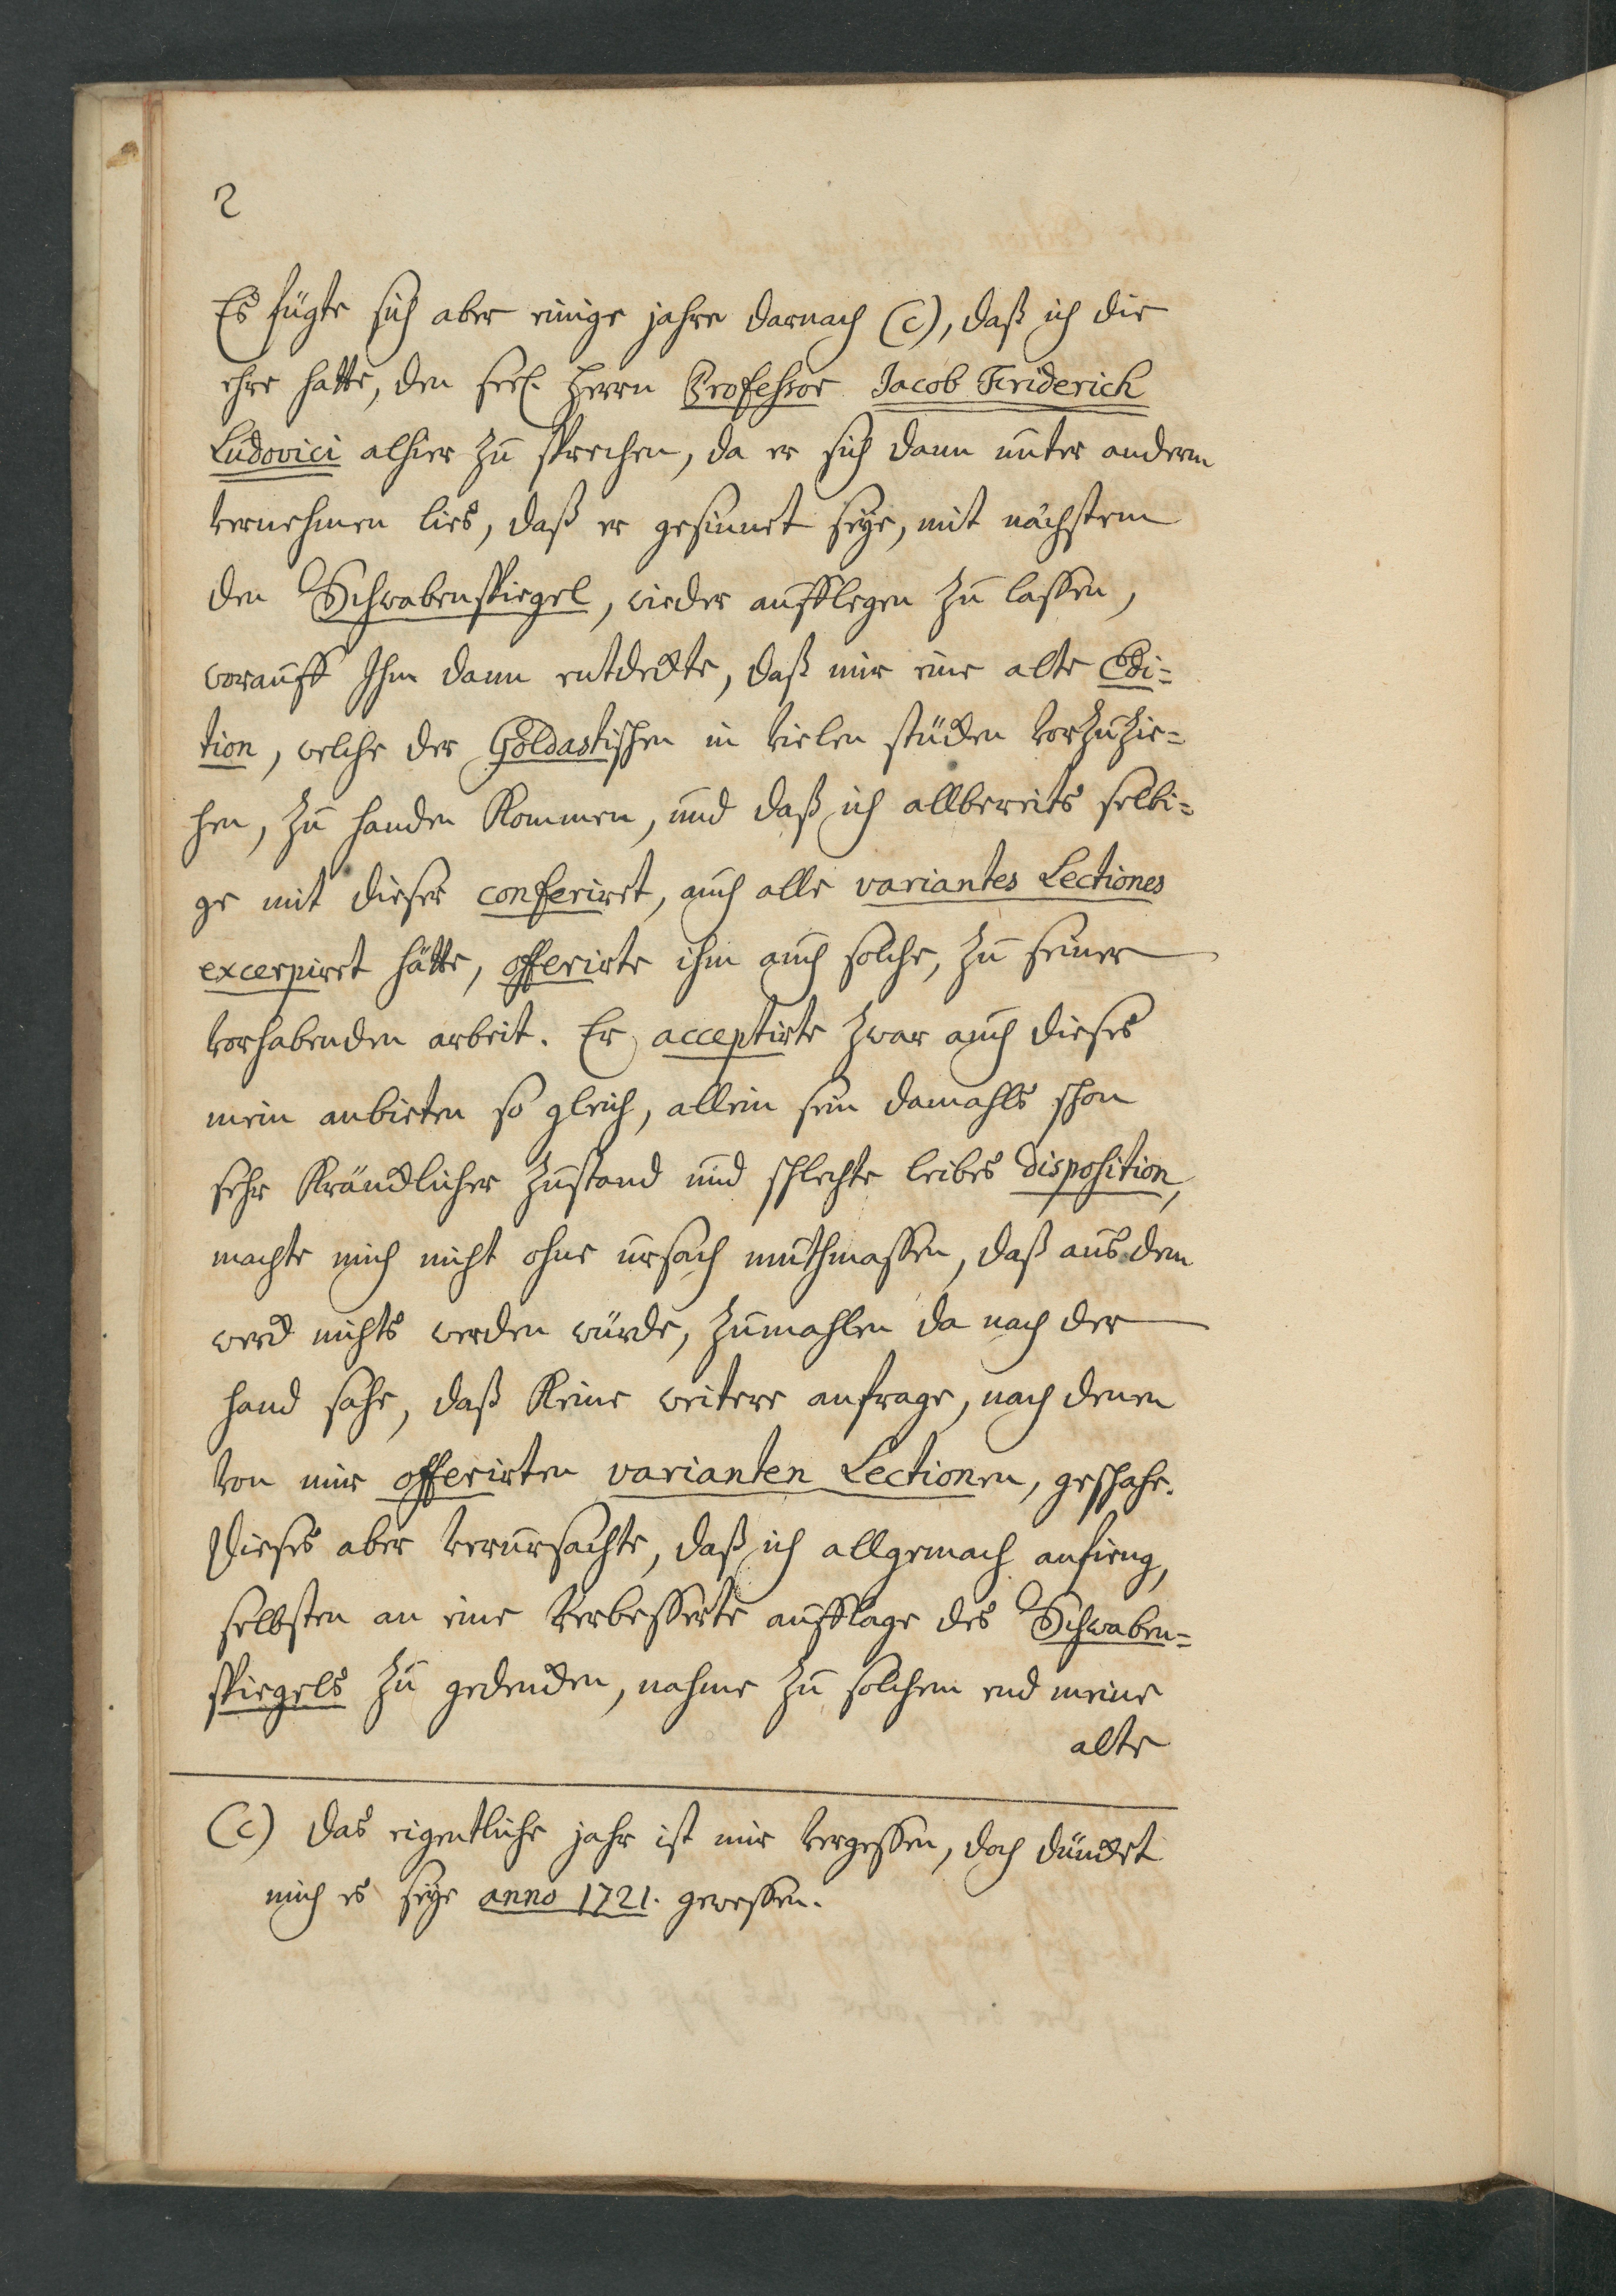 2
Es fügte sich aber einige jahre darnach (c), daß ich die
ehre hatte, den seel. Herrn Professor Jacob Friderich
Ludovici alhier zu sprechen, da er sich dann unter anderm
vernehmen lies, daß er gesinnet seye, mit nächstem
den Schwabenspiegel, wieder aufflegen zu lassen,
worauff Ihm dann entdeckte, daß mir eine alte Edi=
tion, welche der Goldastischen in vielen stücken vorzuzie=
hen, zu handen kommen, und daß ich allbereits selbi=
ge mit dieser conferiret, auch alle variantes Lectiones
excerpiret hätte, offerirte ihm auch solche, zu seiner
vorhabenden arbeit. Er acceptirte zwar auch dieses
mein anbieten so gleich, allein sein damahls schon
sehr kräncklicher zustand und schlechte leibes disposition,
machte mich nicht ohne ursach muthmassen, daß aus dem
werck nichts werden würde, zumahlen da nach der
hand sahe, daß keine weitere anfrage, nach denen
von mir offerirten varianten Lectionen, geschahe.
Dieses aber verursachte, daß ich allgemach anfieng,
selbsten an eine verbesserte aufflage des Schwaben=
spiegels zu gedencken, nahme zu solchem end meine
alte
(c) das eigentliche jahr ist mir vergessen, doch düncket
mich es seye anno 1721. gewessen.